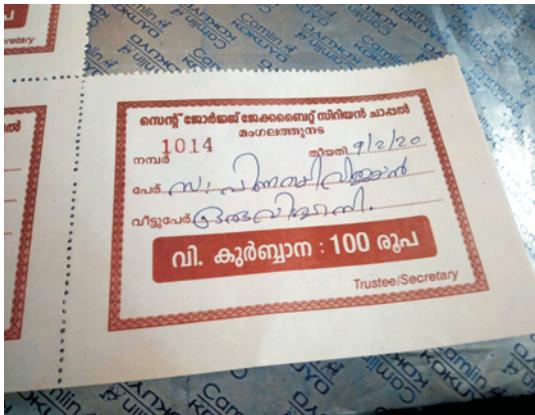 cretary
സെന്റ് ജോർജ്ജ് ജേക്കബൈറ്റ് സിറിയൻ ചാപ്പൽ
മംഗലത്തുനട
നമ്പർ 1014 തീയതി 9/2/20
പേര് സ: പിണറായി വിജയൻ
വീട്ടുപേര് ഒരു വിശ്വാസി.
വി. കുർബ്ബാന : 100 രൂപ
Trustee/Secretary
Camlin
KOKUYO